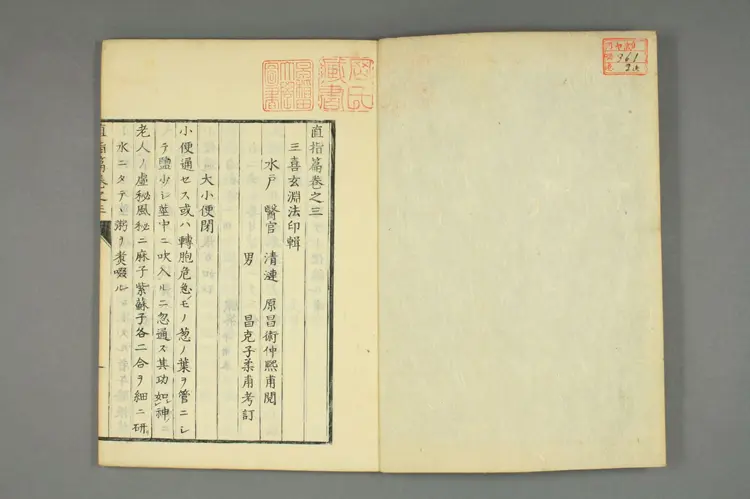 直指篇卷之三
三喜玄淵法印輯
水戸 醫官 清漣 原昌衛仲熙甫閲
男 昌克子柔甫考訂
大小便閉
小便通セス或ハ轉胞危急ノモノ葱ノ葉ヲ管ニシ
テ鹽少シ莖中ニ吹入ルニ忽通ス其功如神
老人ノ虚秘風秘ニ麻子紫蘇子各二合ヲ細ニ研
水ニタテ粥ヲ煮啜ル
直指篇卷之三
藏書
961